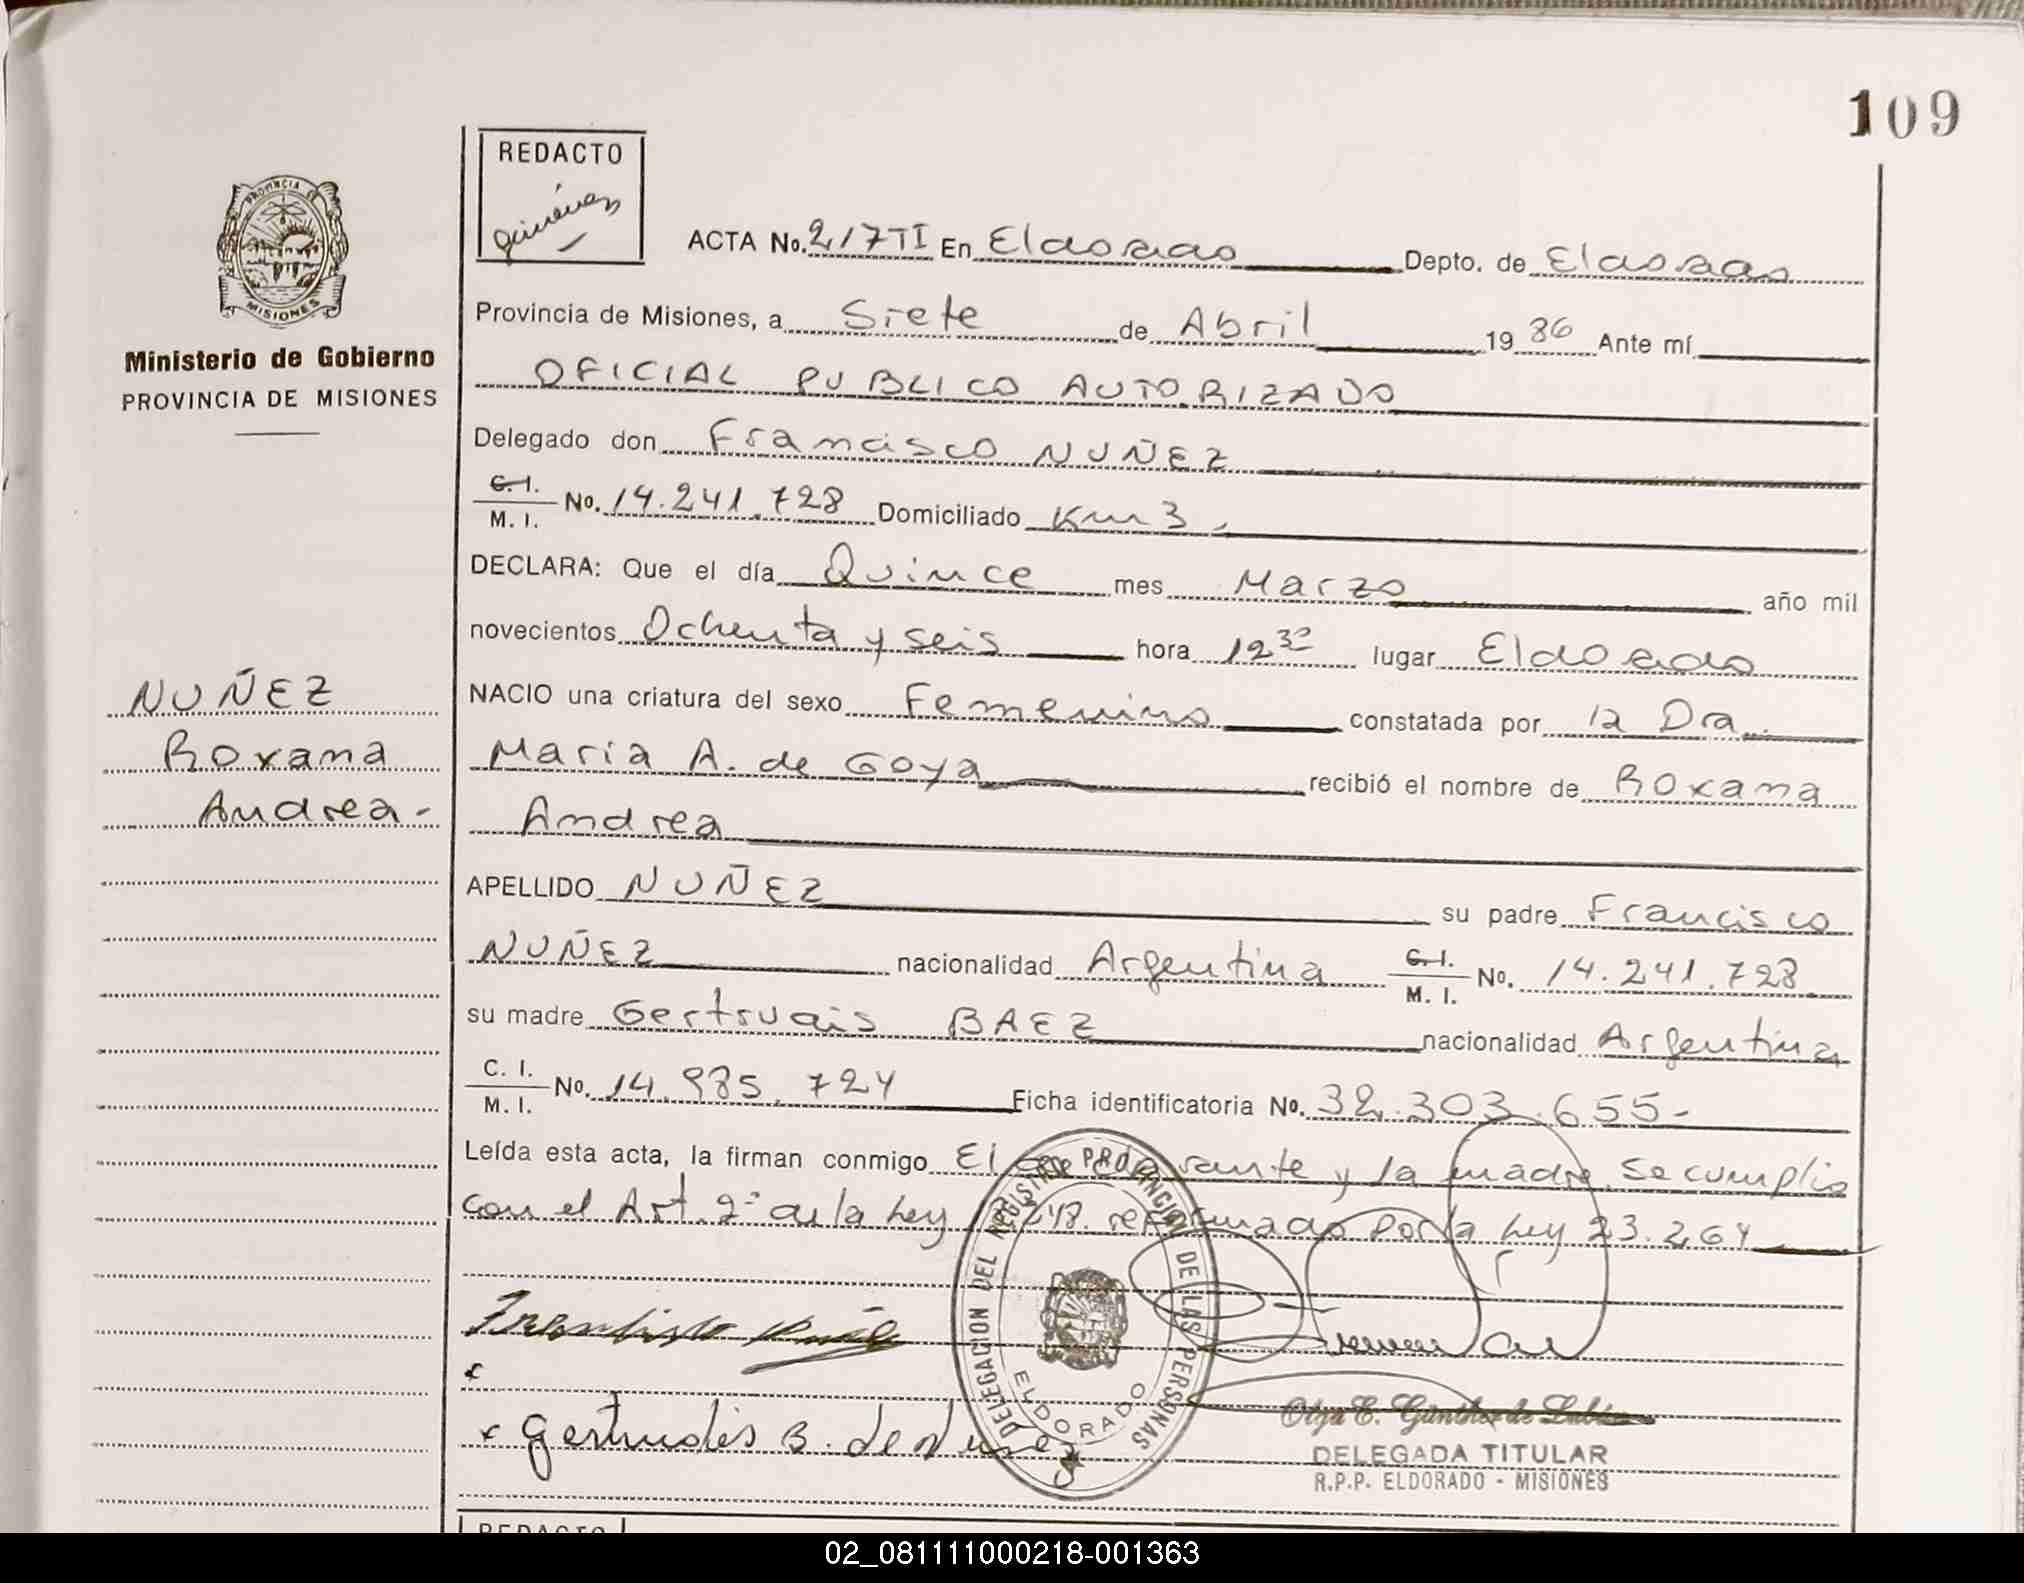 109
REDACTO
Giménez
PROVINCIA DE
MISIONES
Ministerio de Gobierno
PROVINCIA DE MISIONES
ACTA No. 217 TI En Eldorado Depto. de Eldorado
Provincia de Misiones, a Siete de Abril 1986 Ante mí
OFICIAL PUBLICO AUTORIZADO
Delegado don Francisco NUÑEZ
C. I. / M. I. No. 14.241.728 Domiciliado Km 3.
DECLARA: Que el día Quince mes Marzo año mil
novecientos Ochenta y seis hora 12 30 lugar Eldorado
NUÑEZ
Roxana
Andrea-
NACIO una criatura del sexo Femenino constatada por la Dra.
Maria A. de Goya recibió el nombre de Roxana
Andrea
APELLIDO NUÑEZ su padre Francisco
NUÑEZ nacionalidad Argentina C. I. / M. I. No. 14.241.728
su madre Gertrudis BAEZ nacionalidad Argentina
C. I. / M. I. No. 14.985.724 Ficha identificatoria No. 32.303.655-
Leída esta acta, la firman conmigo El declarante y la madre se cumplio
con el Art. 2º de la Ley 18.248. reformado por la Ley 23.264
DELEGACION DEL REGISTRO PROVINCIAL DE LAS PERSONAS
ELDORADO
Gertrudis B. de Nuñez
Olga E. Günther de
DELEGADA TITULAR
R.P.P. ELDORADO - MISIONES
REDACTO
02_081111000218-001363